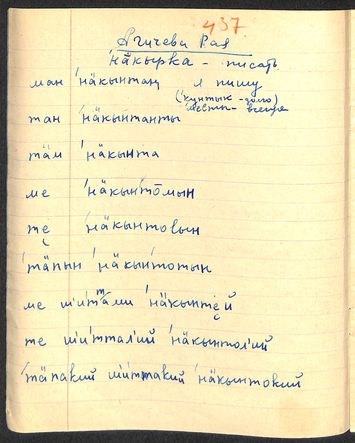 437
Агичева Рая
'нäкырка - писать
ман 'нäкынтаң я пишу
(кунтык - долго)
тан 'нäкынтанты
тäм 'нäкынта
ме 'нäкынто̄мын
те 'нäкынтовын
'тäпын 'нäкынтотын
ме шитäми 'нäкынтей
те шитталий 'нäкынтолий
'тäпакий шиттакий 'нäкынтокий